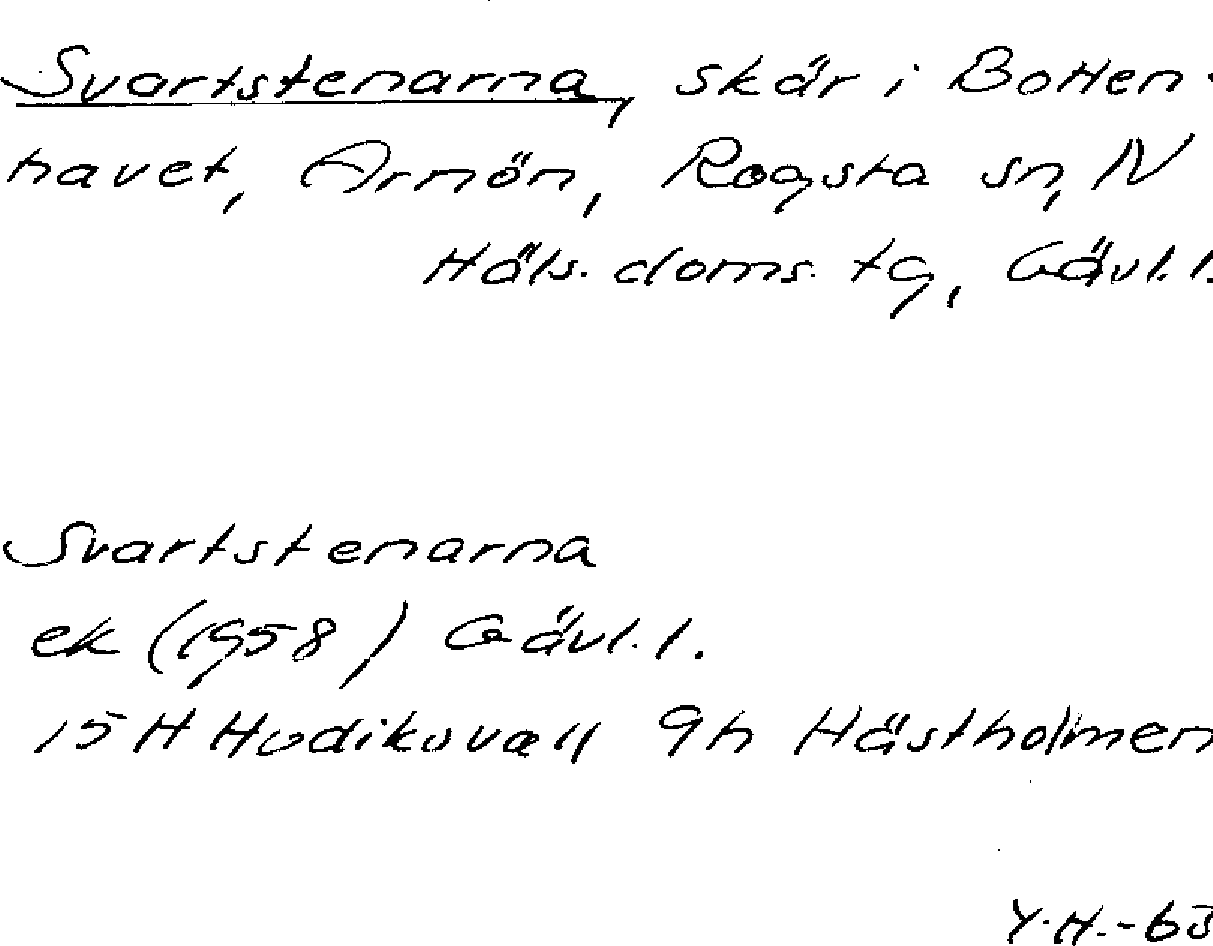 Svartstenarna, skär i Botten-
havet, Arnön, Rogsta sn, N
Häls. doms. tg, Gävl. l.
Svartstenarna
ek (1958) Gävl. l.
15 H Hudiksvall 9h Hästholmen
Y.H.-63